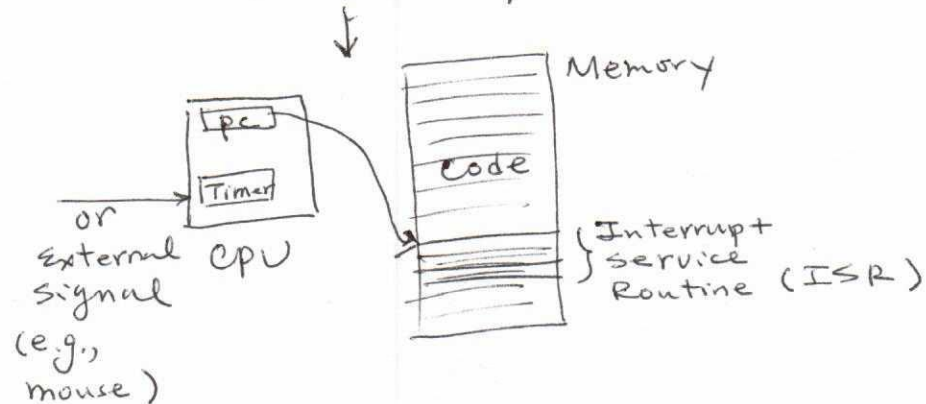 Memory
pc
Code
Timer
or
External
signal
(e.g.,
mouse)
CPU
Interrupt
Service
Routine (ISR)